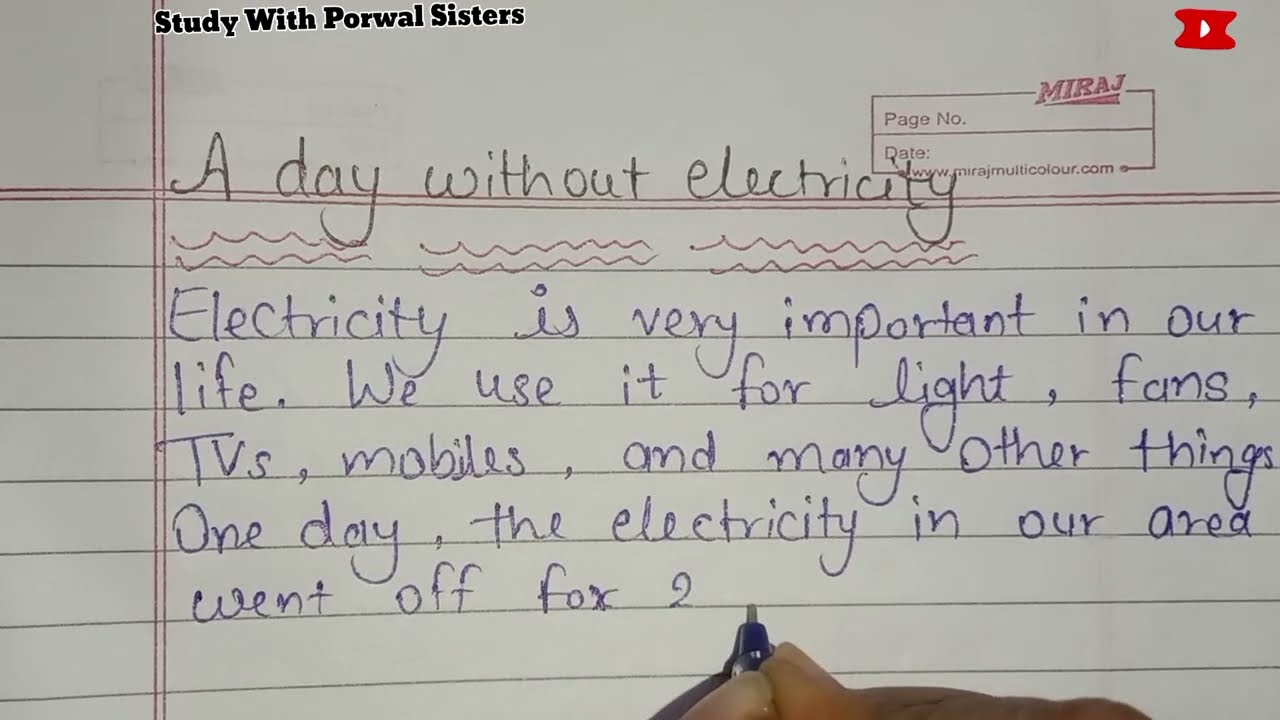 Study With Porwal Sisters
MIRAJ
Page No.
Date:
www.mirajmulticolour.com
A day without electricity
Electricity is very important in our
life. We use it for light, fans,
TVs, mobiles, and many other things
One day, the electricity in our area
went off for 2